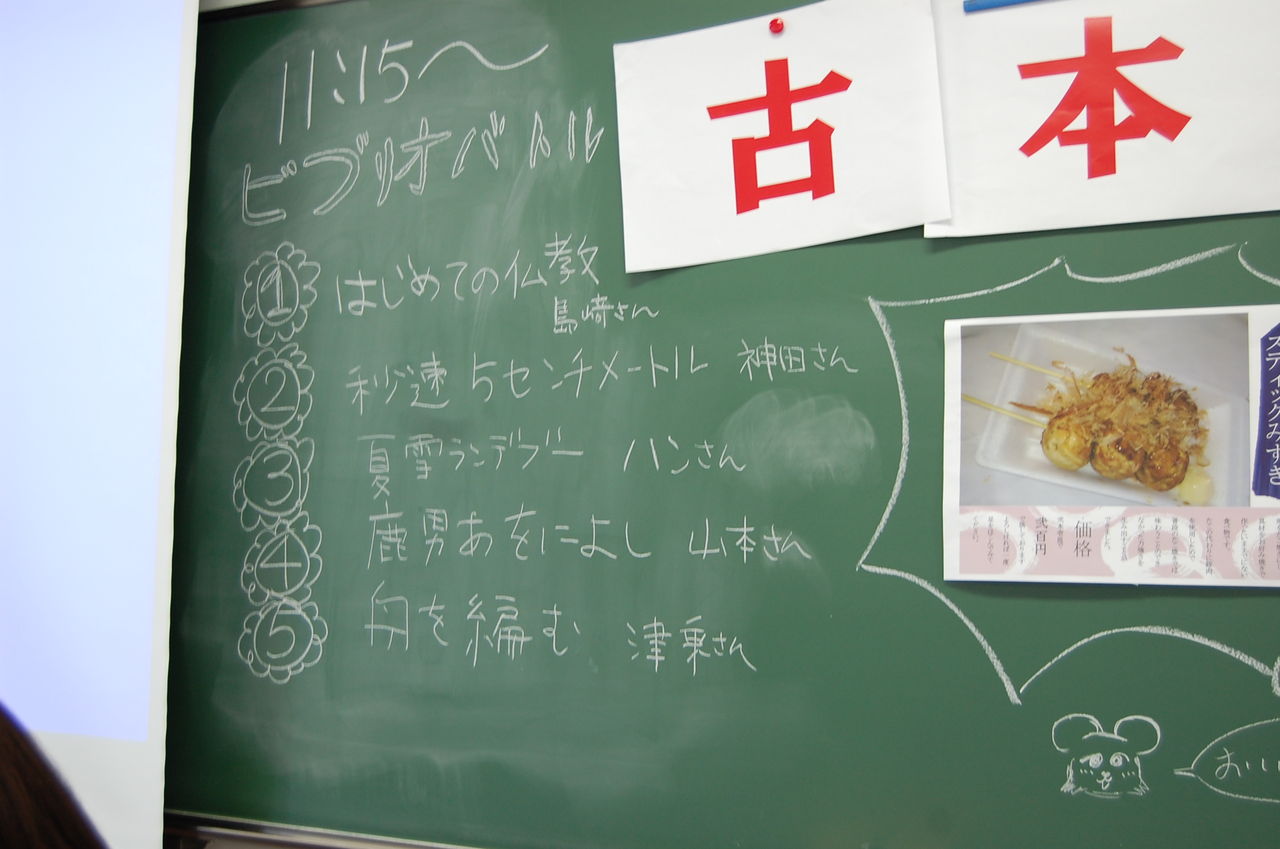 11:15〜
ビブリオバトル
① はじめての仏教
島崎さん
② 秒速5センチメートル 神田さん
③ 夏雪ランデブー ハンさん
④ 鹿男あをによし 山本さん
⑤ 舟を編む 津乗さん
古本
スティックみずき
価格
弐百円
おい